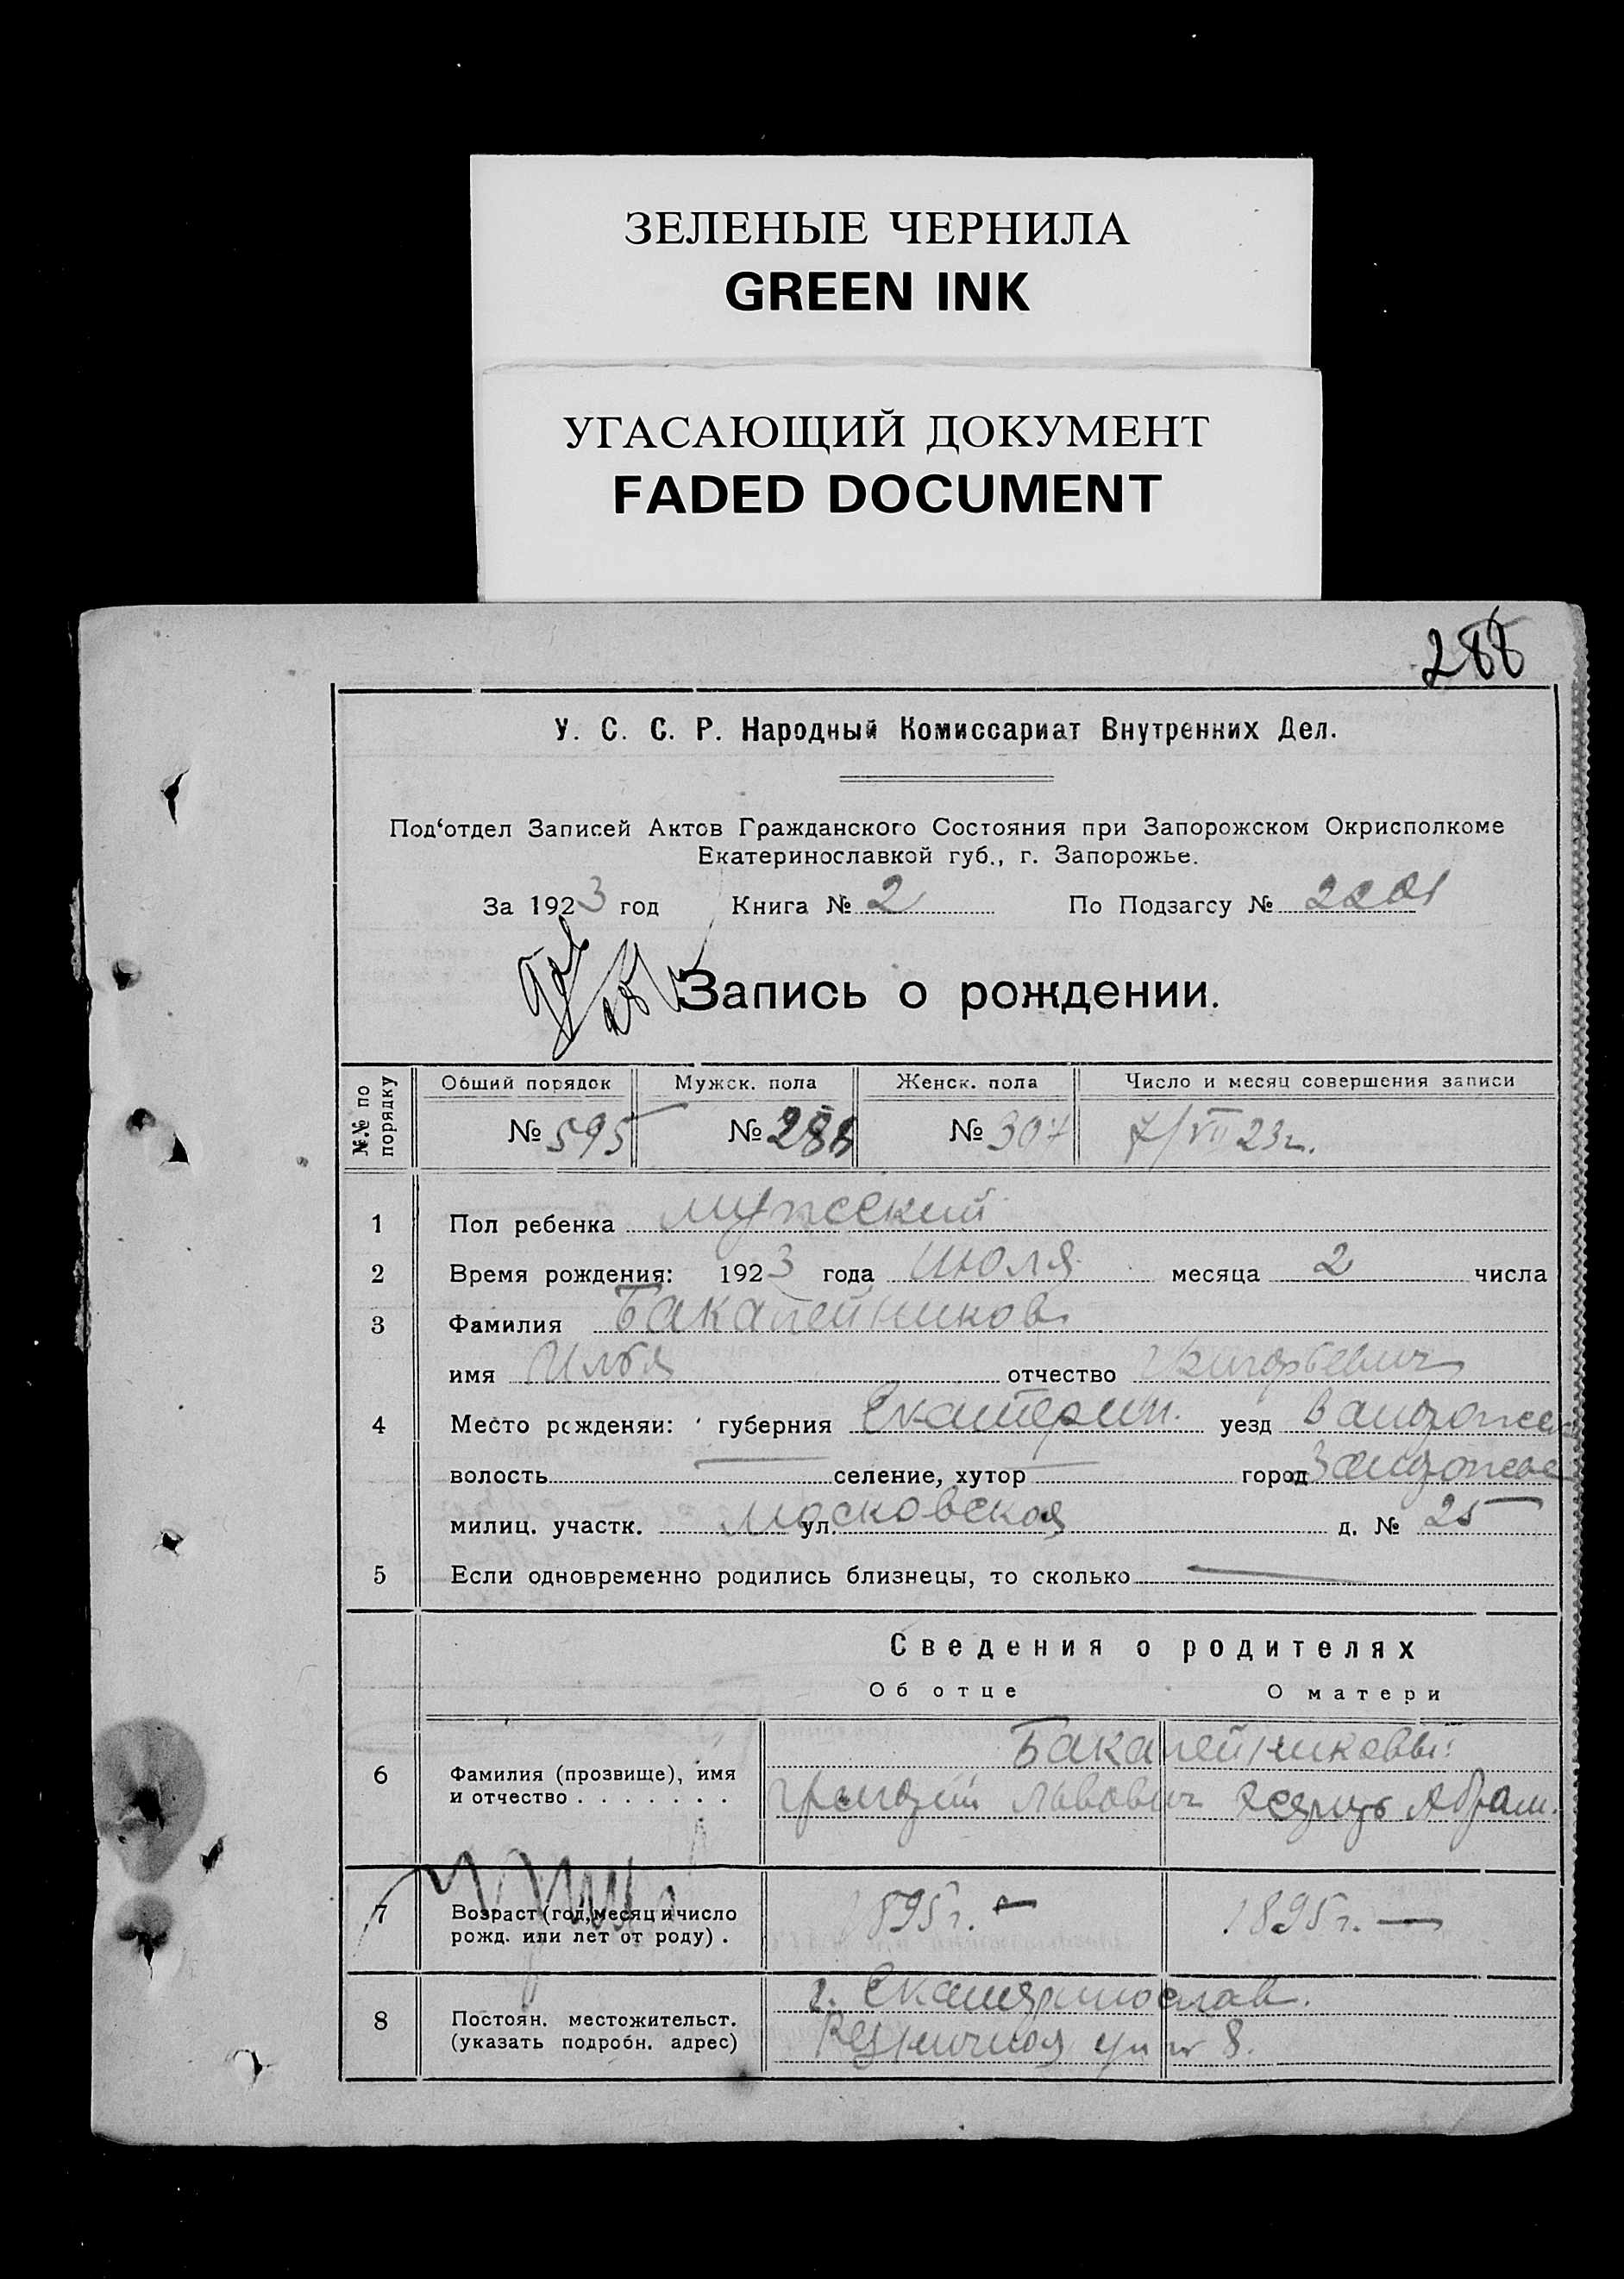 ЗЕЛЕНЫЕ ЧЕРНИЛА
GREEN INK
УГАСАЮЩИЙ ДОКУМЕНТ
FADED DOCUMENT
288
У. С. С. Р. Народный Комиссариат Внутренних Дел.
Под‘отдел Записей Актов Гражданского Состояния при Запорожском Окрисполкоме
Екатеринославкой губ., г. Запорожье.
За 1923 год Книга № 2 По Подзагсу № 2201
Запись о рождении.
№№ по порядку Общий порядок Мужск. пола Женск. пола Число и месяц совершения записи
№ 595 № 288 № 307 7/VII 23 г.
1 Пол ребенка мужеский
2 Время рождения: 1923 года июля месяца 2 числа
3 Фамилия Бакалейников
имя Илья отчество
4 Место рожденяи: губерния Екатерин. уезд
волость селение, хутор город Запорожье
милиц. участк. ул. Московская д. № 25
5 Если одновременно родились близнецы, то сколько
Сведения о родителях
Об отце О матери
Бакалейниковы:
6 Фамилия (прозвище), имя
и отчество . . . . . . . Львович Абрам.
7 Возраст (год, месяц и число 1895 г. — 1895 г. —
рожд. или лет от роду) .
г. Екатеринослав.
8 Постоян. местожительст.
(указать подробн. адрес) ул № 8.